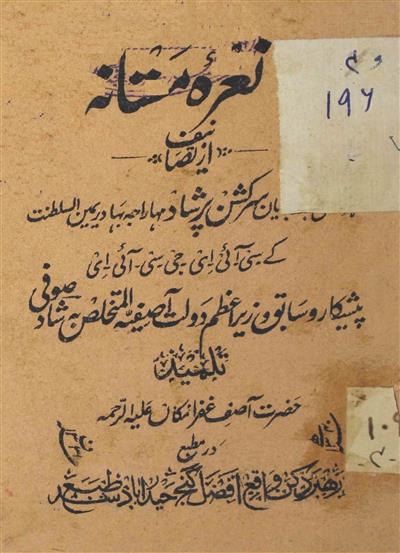 نعرۂ مستانہ
از تصانیف
سرکشن پرشاد مہاراجہ بہادر یمین السلطنت
کے سی آئی ای جی سی۔ آئی ای
پیشکار و سابق وزیر اعظم دولت آصفیہ المتخلص بہ شاد صوفی
تلمیذ
حضرت آصف غفران مکان علیہ الرحمہ
در مطبع
رہبر دکن واقع افضل گنج حیدرآباد دکن طبع شد
و م
۱۹۶